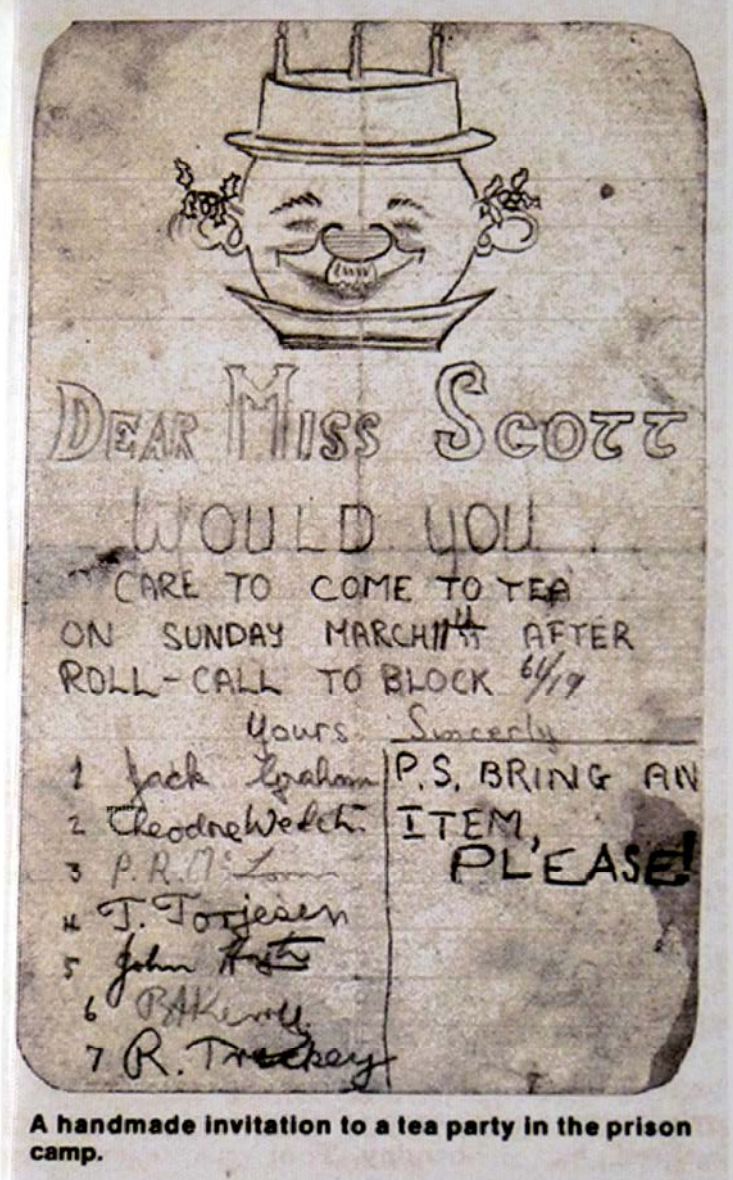 DEAR MISS SCOTT
WOULD YOU
CARE TO COME TO TEA
ON SUNDAY MARCH 11TH AFTER
ROLL-CALL TO BLOCK 61/19
Yours Sincerly
1 Jack Graham
2 Theodore Welch
3 P. R.
4 T. Torjesen
5 John
6
7 R. Trickey
P.S. BRING AN
ITEM,
PLEASE!
A handmade invitation to a tea party in the prison
camp.